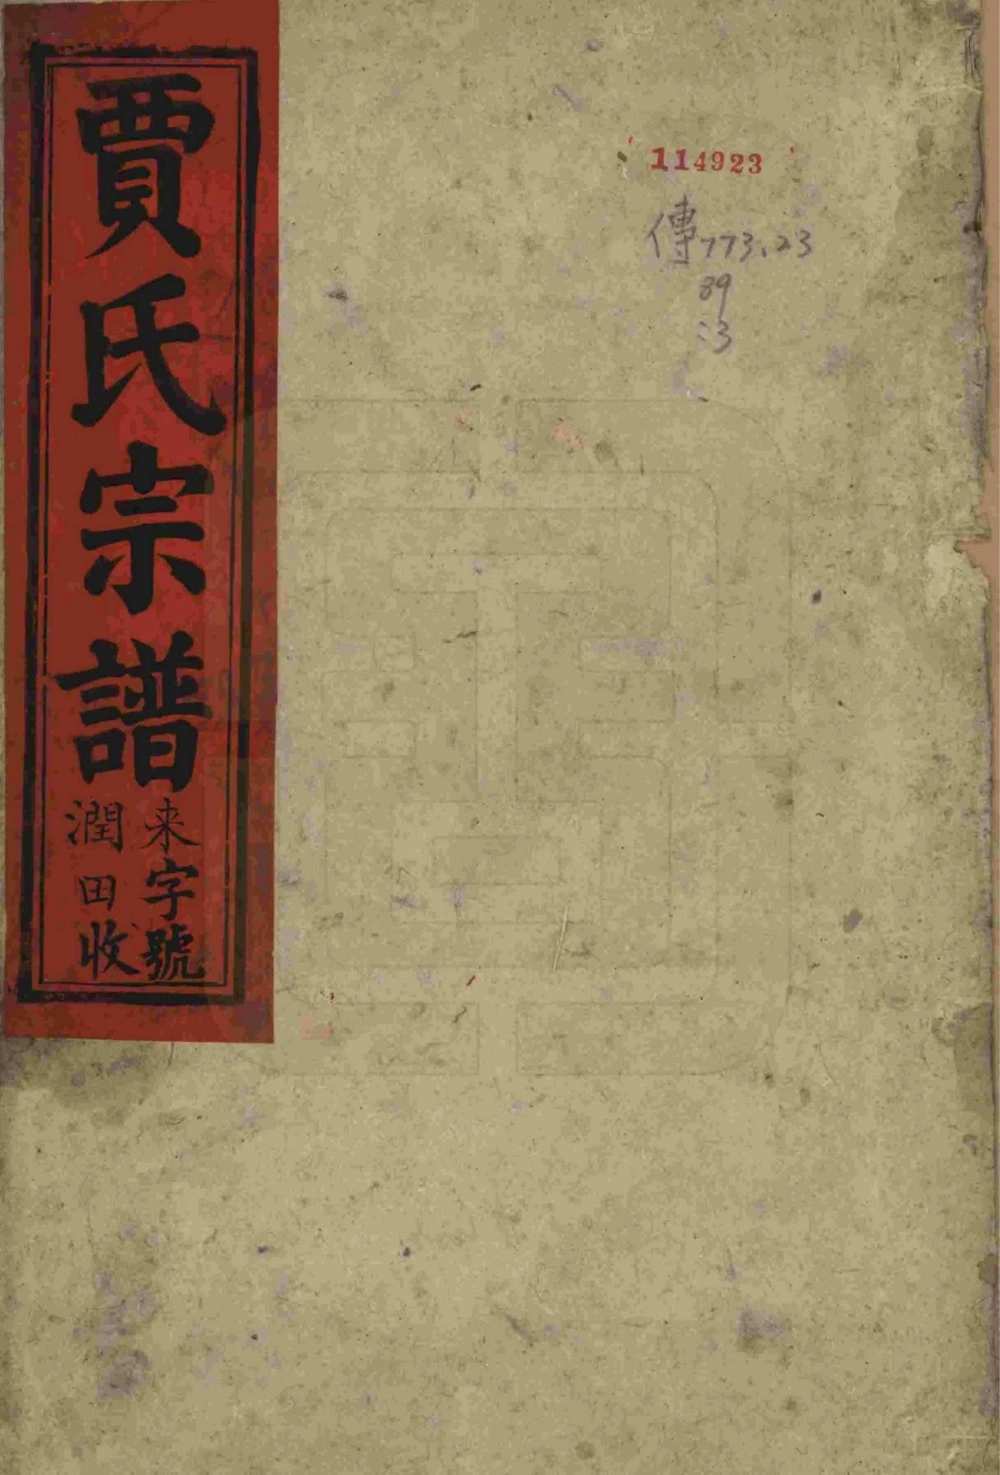 賈氏宗譜
来字號
潤田收
114923
傳773.23
89
:3